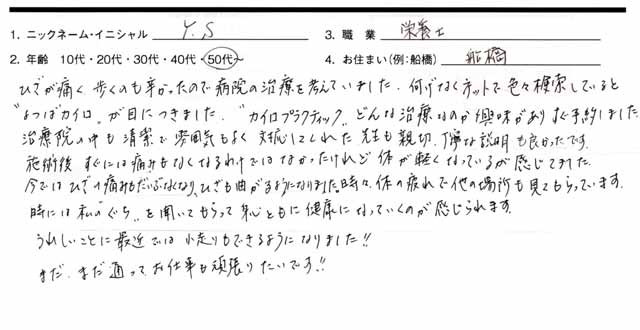 1. ニックネーム・イニシャル Y.S 3. 職業 栄養士
2. 年齢 10代・20代・30代・40代・50代~ 4. お住まい(例:船橋) 船橋
ひざが痛く歩くのも辛かったので病院の治療を考えていました。何げなくネットで色々検索していると
"よつばカイロ"が目につきました。"カイロプラクティック"どんな治療なのか興味がありすぐ予約しました
治療院の中も清潔で雰囲気もよく対応してくれた先生も親切、丁寧な説明も良かったです。
施術後すぐには痛みもなくなるわけではなかったけれど体が軽くなっているが感じてました。
今ではひざの痛みもだいぶなくなり、ひざも曲がるようになりました。時々、体の疲れで他の場所も見てもらっています。
時には私の"ぐち"を聞いてもらって身心ともに健康になっていくのが感じられます。
うれしいことに最近では小走りもできるようになりました!!
まだ、まだ通って、お仕事も頑張りたいです!!